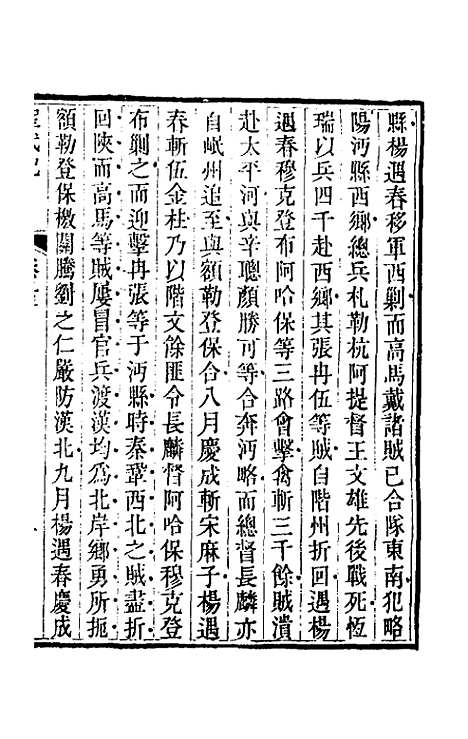 縣楊遇春移軍西剿而高馬戴諸賊已合隊東南犯略
陽沔縣西鄉總兵札勒杭阿提督王文雄先後戰死恆
瑞以兵四千赴西鄉其張冉伍等賊自階州折回遇楊
遇春穆克登布阿哈保等三路會擊禽斬三千餘賊潰
赴太平河與辛聰顏勝可等合奔沔略而總督長麟亦
自岷州追至與額勒登保合八月慶成斬宋麻子楊遇
春斬伍金柱乃以階文餘匪分長麟督阿哈保穆克登
布剿之而迎擊冉張等于沔縣時秦鞏西北之賊盡折
回陜而高馬等賊屢冒官兵渡漢均爲北岸鄉勇所扼
額勒登保檄閻騰劉之仁嚴防漢北九月楊遇春慶成
聖武記